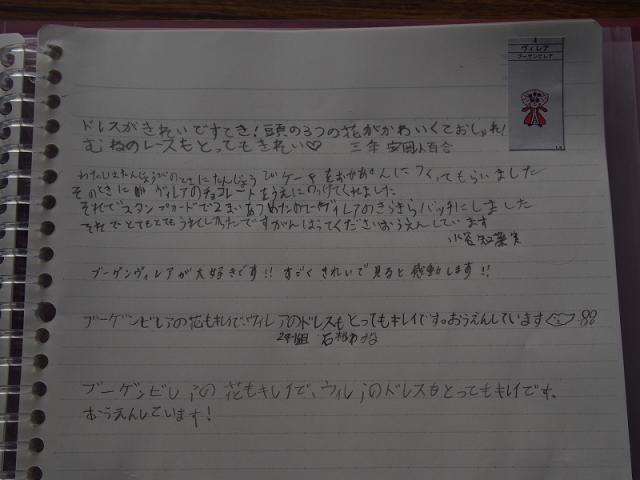 ヴィレア
ブーゲンビレア
ドレスがきれいですてき!頭の3つの花がかわいくておしゃれ!
むねのレースもとってもきれい♡ 三年 安岡小百合
わたしはたんじょうびのときにたんじょうびケーキをおかあさんにつくってもらいました
そのときに ヴィレアのチョコレートをうえにのっけてくれました
それでスタンプカードで2まいあつめたのでヴィレアのきらきらバッチにしました
それで とてもとてもうれしかったですがんばってくださいおうえんしています
ブーゲンヴィレアが大好きです!! すごくきれいで見ると感動します!!
ブーゲンビレアの花もキレイで、ヴィレアのドレスもとってもキレイです。おうえんしています
2年1組 石松わかな
ブーゲンビレアの花もキレイで、ヴィレアのドレスもとってもキレイです。
おうえんしています!